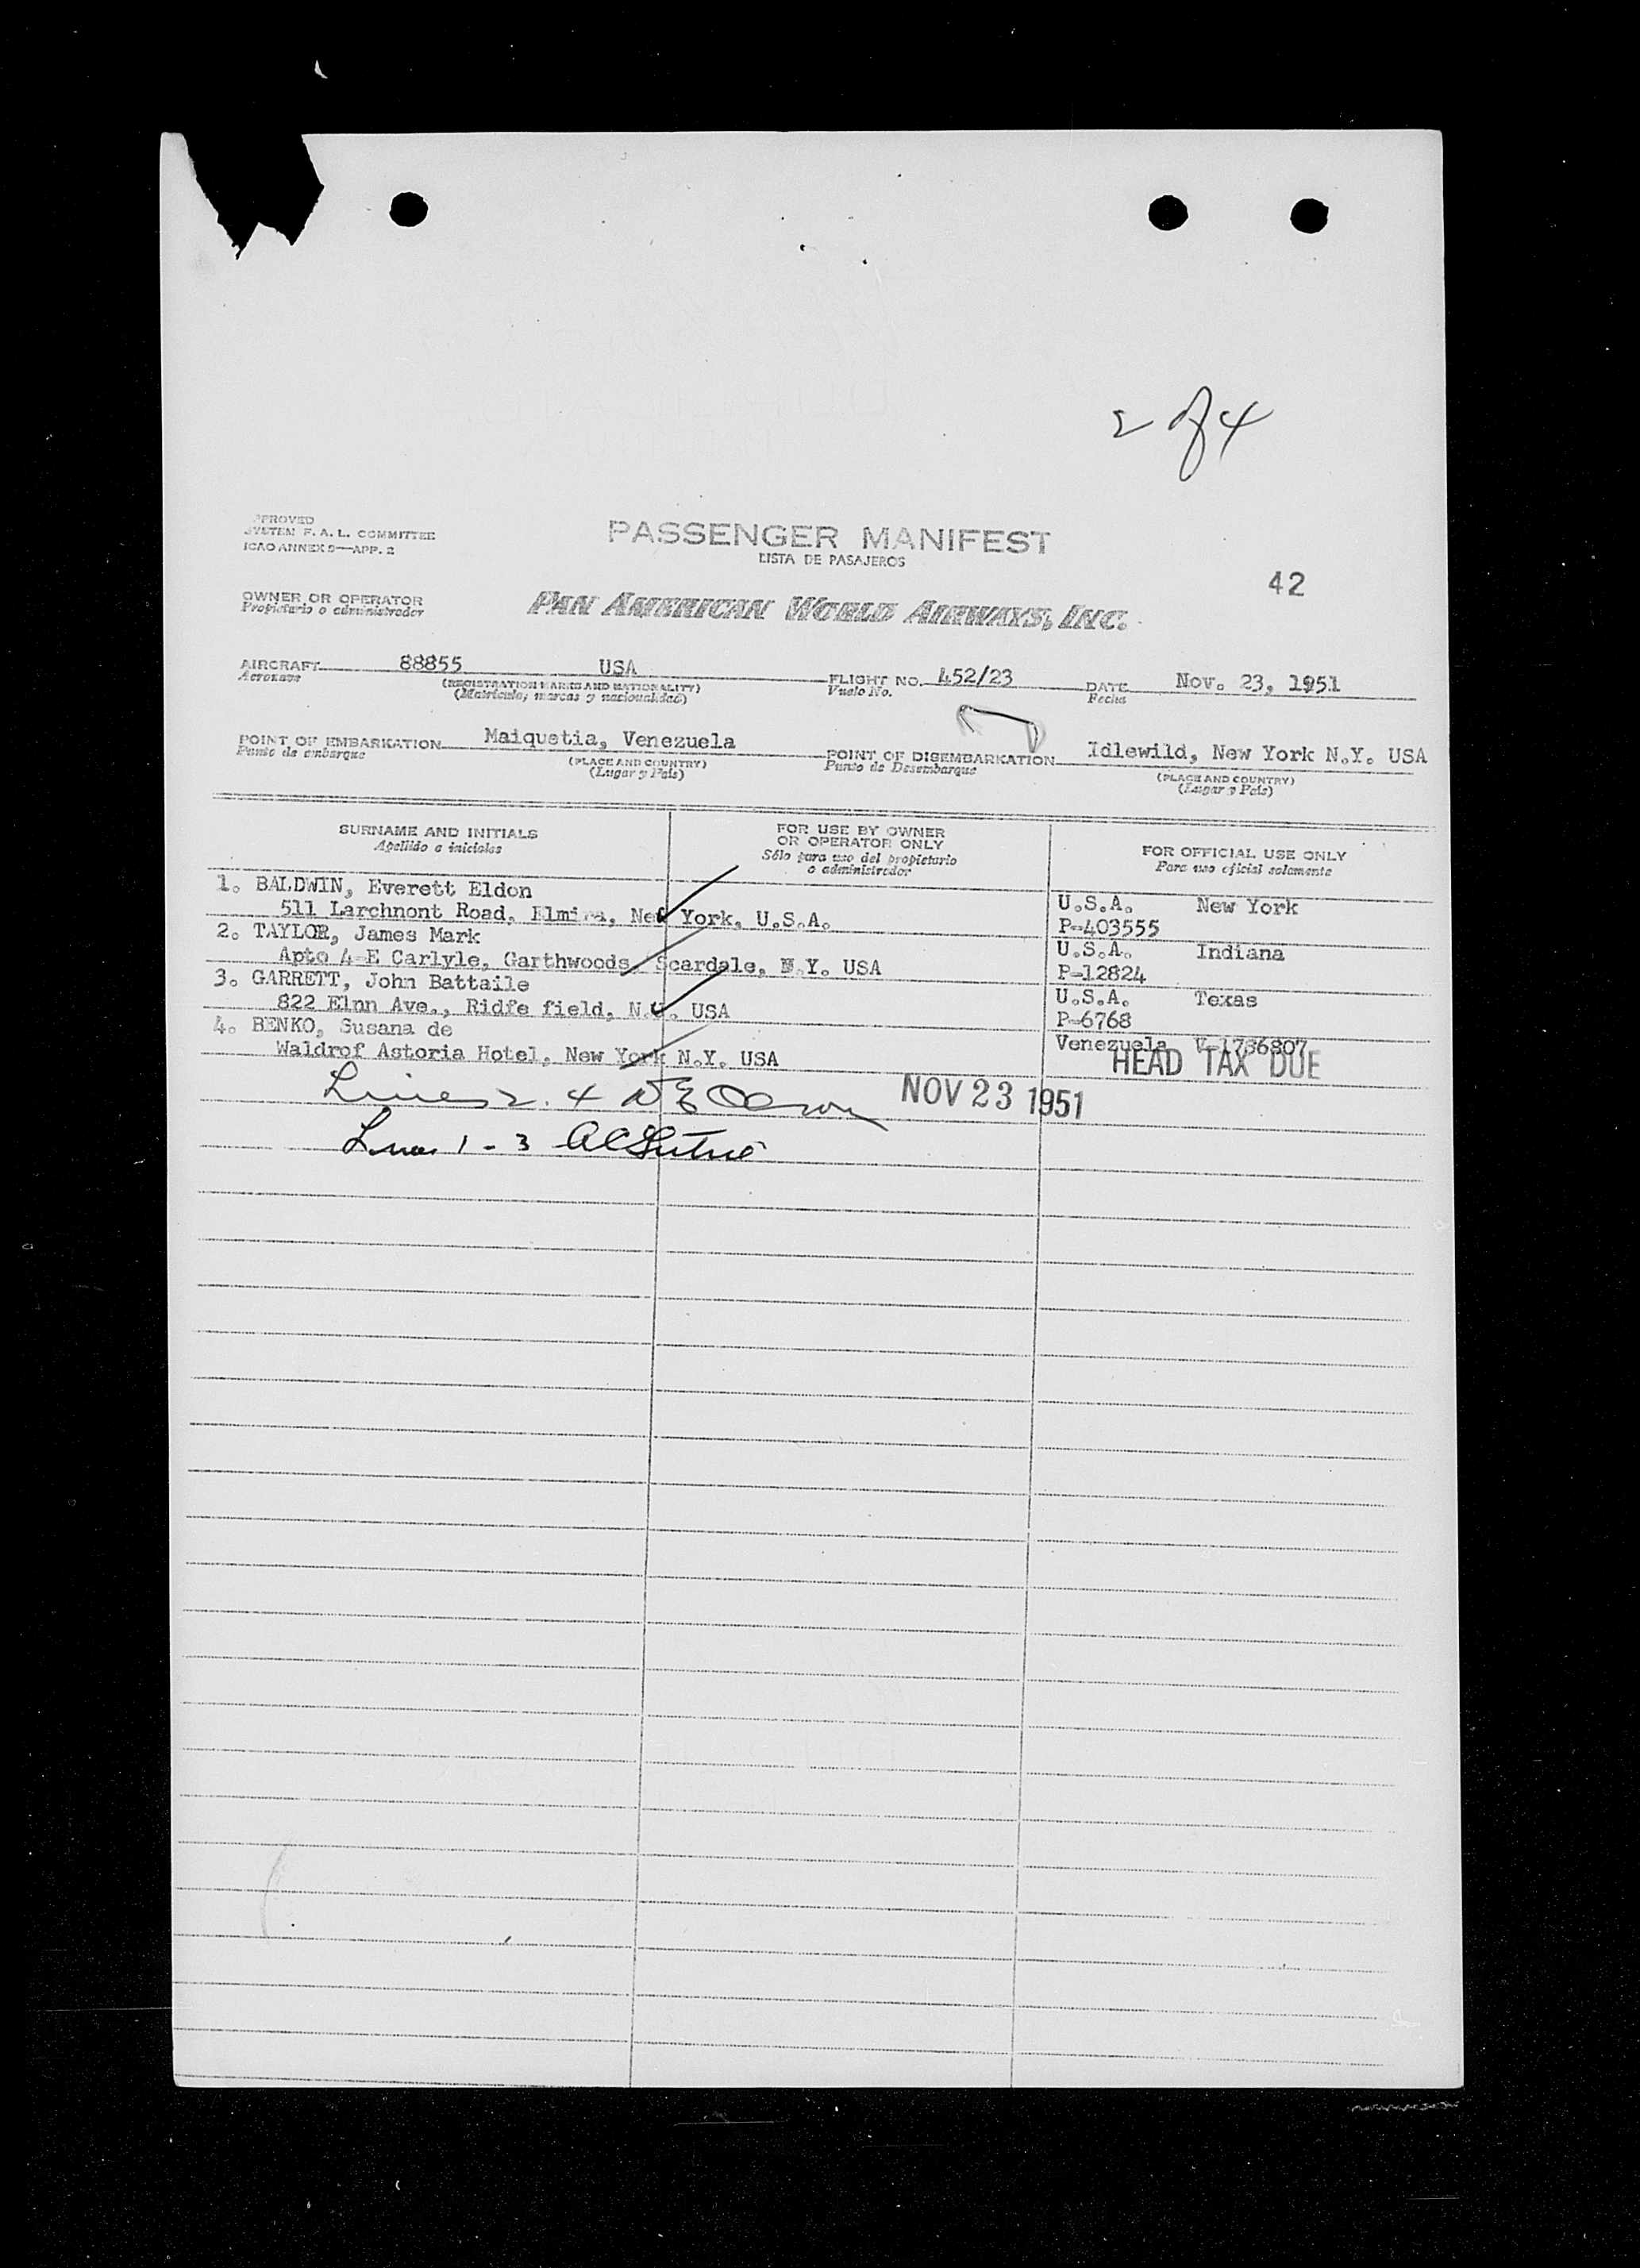 2 of 4
PROVED
SYSTEM F. A. L. COMMITTEE
ICAO ANNEX 9—APP. 2
PASSENGER MANIFEST
LISTA DE PASAJEROS
42
OWNER OR OPERATOR
Propietario o administrador
PAN AMERICAN WORLD AIRWAYS, INC.
AIRCRAFT 88855 USA FLIGHT NO. 452/23 DATE Nov. 23, 1951
Aeronave (REGISTRATION MARKS AND NATIONALITY) Vuelo No. Fecha
(Matrícula, marcas y nacionalidad)
POINT OF EMBARKATION Maiquetia, Venezuela POINT OF DISEMBARKATION Idlewild, New York N.Y. USA
Punto de embarque (PLACE AND COUNTRY) Punto de Desembarque (PLACE AND COUNTRY)
(Lugar y País) (Lugar y País)
SURNAME AND INITIALS FOR USE BY OWNER OR OPERATOR ONLY FOR OFFICIAL USE ONLY
Apellido e iniciales Sólo para uso del propietario o administrador Para uso oficial solamente
1. BALDWIN, Everett Eldon
511 Larchnont Road, Elmira, New York, U.S.A. U.S.A. New York
P-403555
2. TAYLOR, James Mark
Apto 4-E Carlyle, Garthwoods Scardale, N.Y. USA U.S.A. Indiana
P-12824
3. GARRETT, John Battaile
822 Elnn Ave., Ridfe field, N.J. USA U.S.A. Texas
P-6768
4. BENKO, Susana de Venezuela V-1736807
Waldrof Astoria Hotel, New York N.Y. USA HEAD TAX DUE
Lines 2. 4
NOV 23 1951
Lines 1 - 3